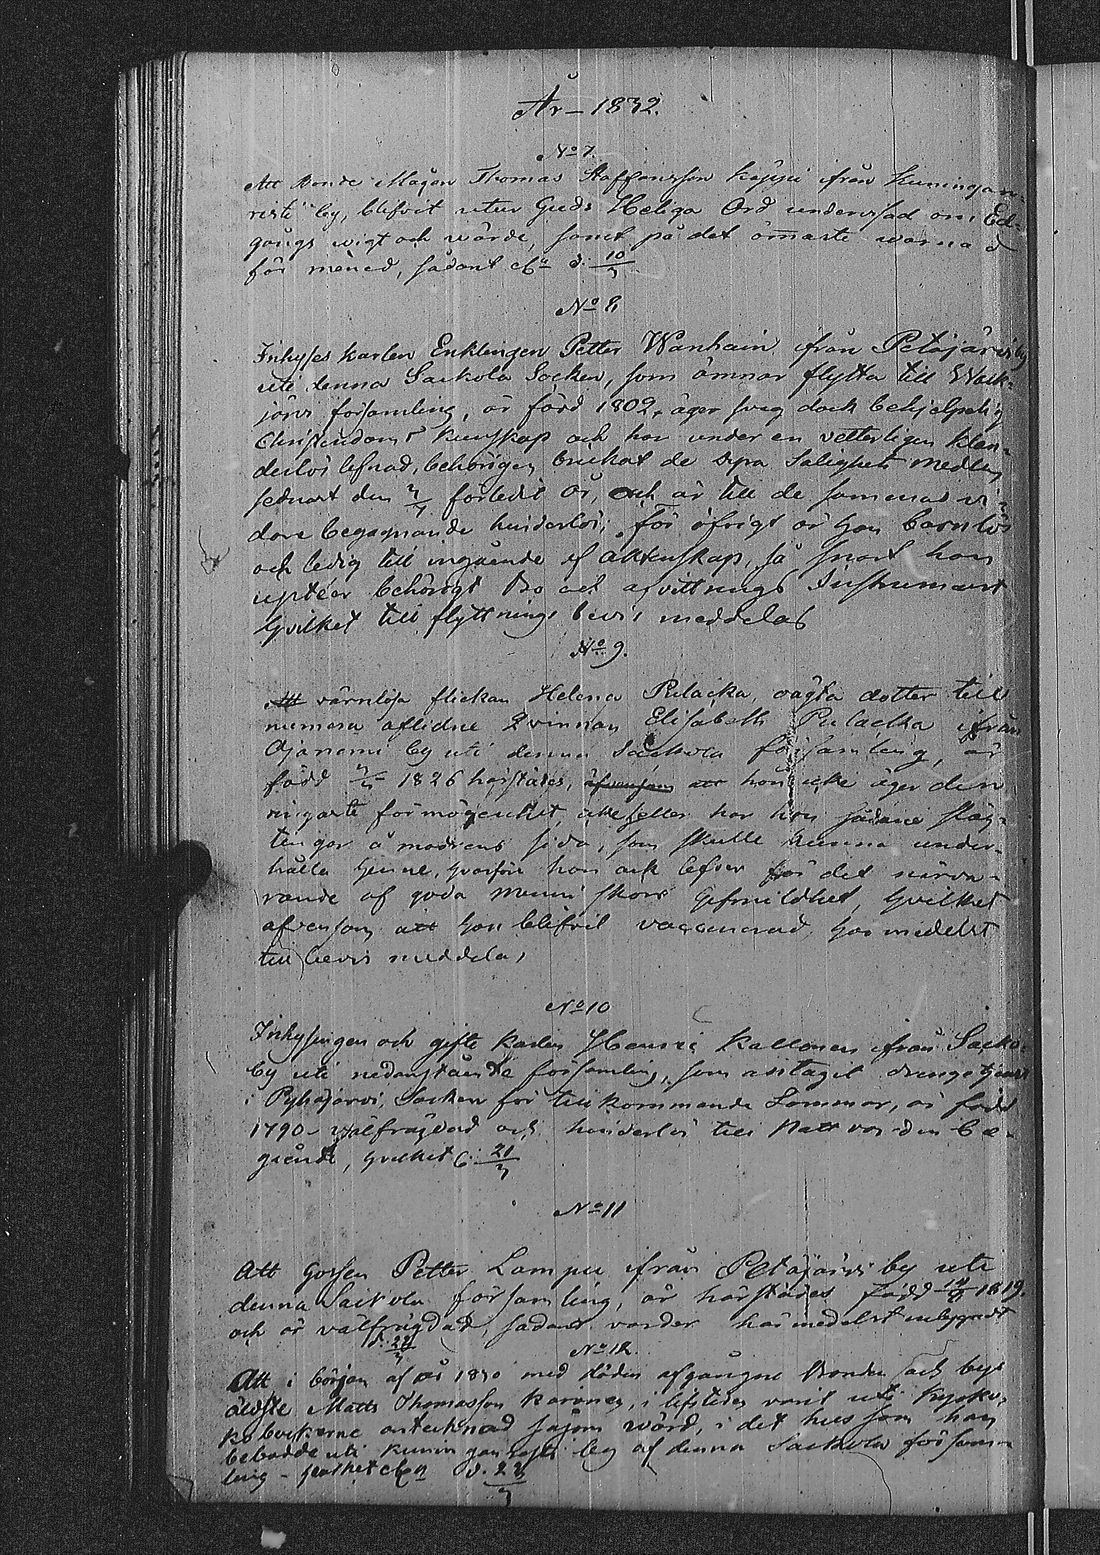 År – 1832.
No 7.
Att Bonde Mågen Thomas Staffansson Käppi från Kuningan-
risti by, blifvit utur Guds Heliga Ord undervisad om Ed-
gångs wigt och wärde, samt på det ömmaste warnad
för mened, sådant d. 10/3
No 8.
Inhyses karlen Enklingen Petter Wanhain från Petäjärvi by
uti denna Sackola Socken, som ämnar flytta till Walk-
järvi församling, är född 1802, äger svag dock behjelpelig
Christendoms kunskap och har under en vetterligen klan-
derlös lefnad, behörigen brukat de dyra Salighets medlen
sednast den förledit år, och är till de sammas vi-
dare begagnande hinderlös; för öfrigt är han barnlös
och ledig till ingående af äktenskap, så snart han
upteer behörigt Bo och afvittrings Instrument
hvilket till flyttnings bevis meddelas
No 9.
Att värnlösa flickan Helena Pulacka, oägta dotter till
numera aflidne Qvinnan Elisabeth Pulacka ifrån
Ojaniemi by uti denna Sackola församling, är
född 1826 härstädes, äfvensom att hon icke äger den
ringaste förmögenhet, icke heller har hon sådane släg-
tingar å modrens sida, som skulle kunna under-
hålla henne, hvarföre hon ock lefver för det närva-
rande af goda menniskors gifmildhet, hvilket
äfvensom att hon blifvit vaccinerad, harmedelst
till bevis meddelas
No 10
Inhysingen och gifte karlen Henric Kallonen ifrån Sackola
by uti nedanstående församling, som antagit drengetjenst
i Pyhäjärvi Socken för tillkommande Sommar, är född
1790 – välfrägdad och hinderlös till Nattvarden be-
gående, hvilket b. 21/3
No 11
Att Gossen Petter Lampu ifrån Petäjärvi by uti
denna Sackola församling, är härstädes född 1819.
och är välfrägdad, sådant varder härmedelst intygadt
d. 22/3
No 12.
Att i början af år 1830 med döden afgångne Bonden och bys
äldste Matts Thomasson Karonen, i lifstiden varit uti kyrko-
böckerne antecknad såsom värd, i det hus som han
bebodde uti Kuningan risti by af denna Sackola försam-
ling – d. 23/3